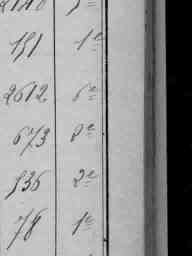 151 1e
2612 6e
673 8e
536 2e
78 1e